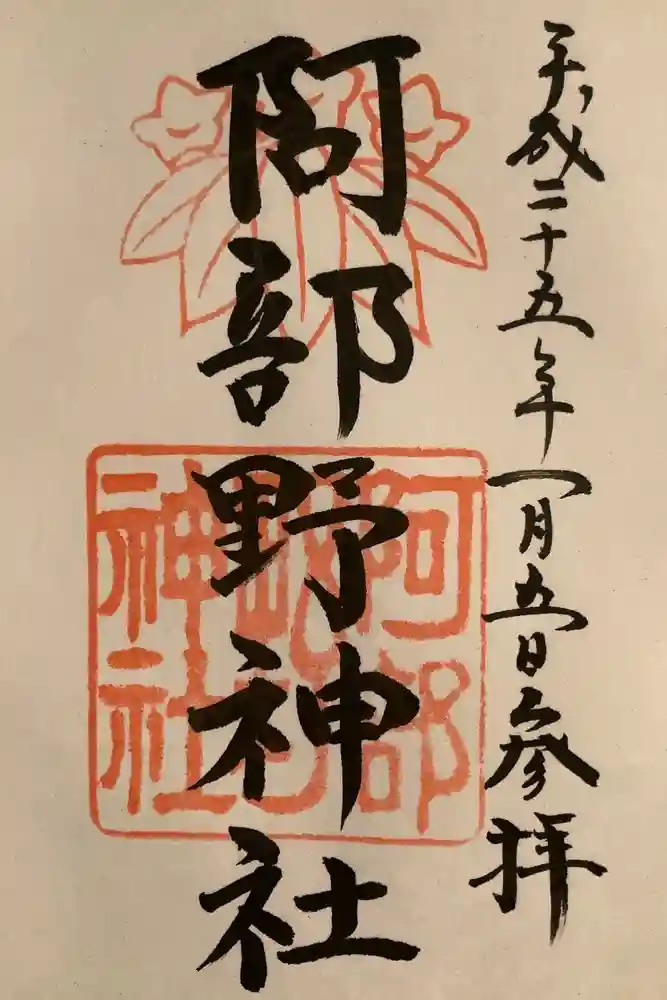 平成二十五年一月五日参拝
阿部野神社
阿部
神社